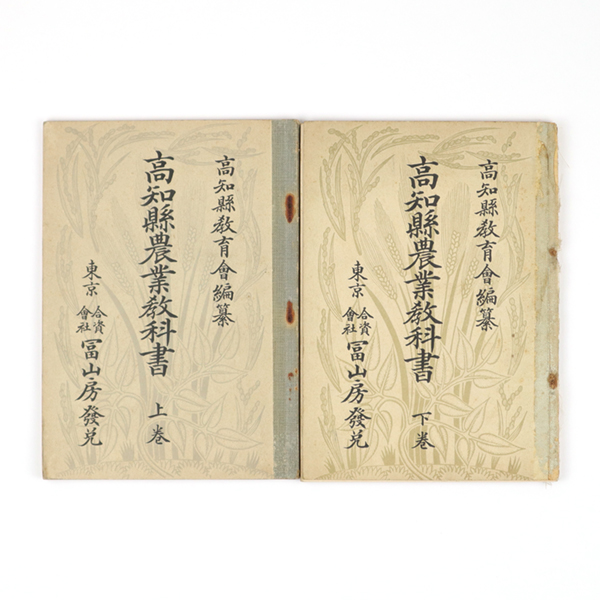 高知縣教育會編纂
高知縣農業教科書
上卷
東京 合資會社 冨山房發兌
高知縣教育會編纂
高知縣農業教科書
下卷
東京 合資會社 冨山房發兌